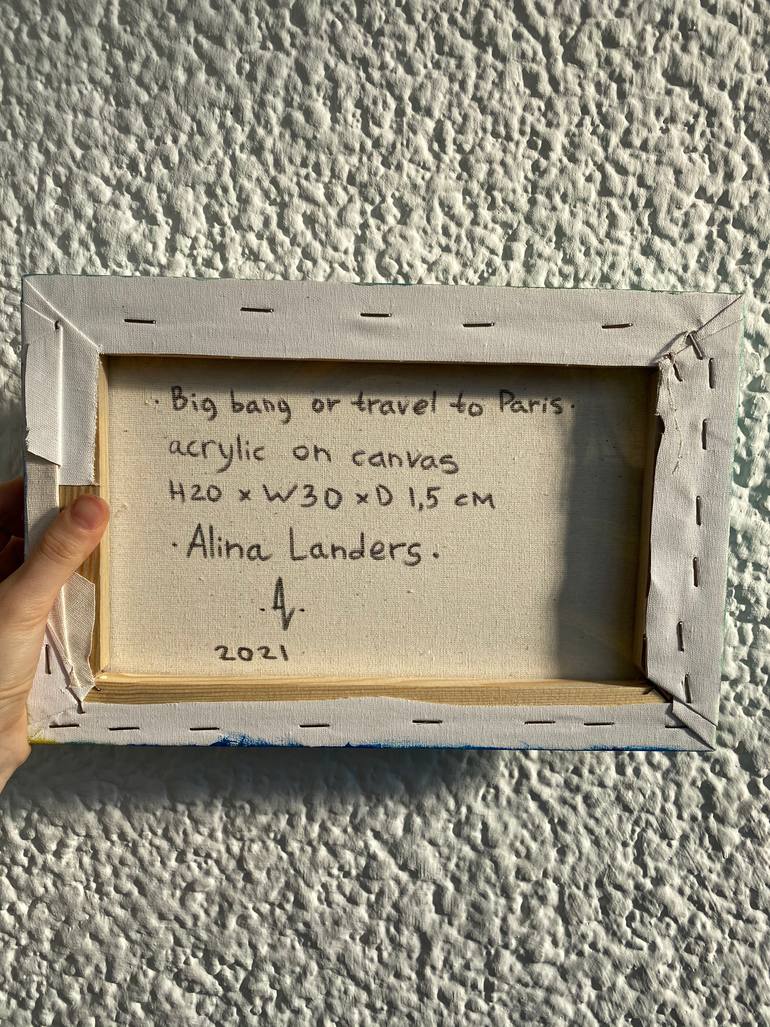 · Big bang or travel to Paris ·
acrylic on canvas
H20 x W30 x D 1,5 cm
· Alina Landers .
2021